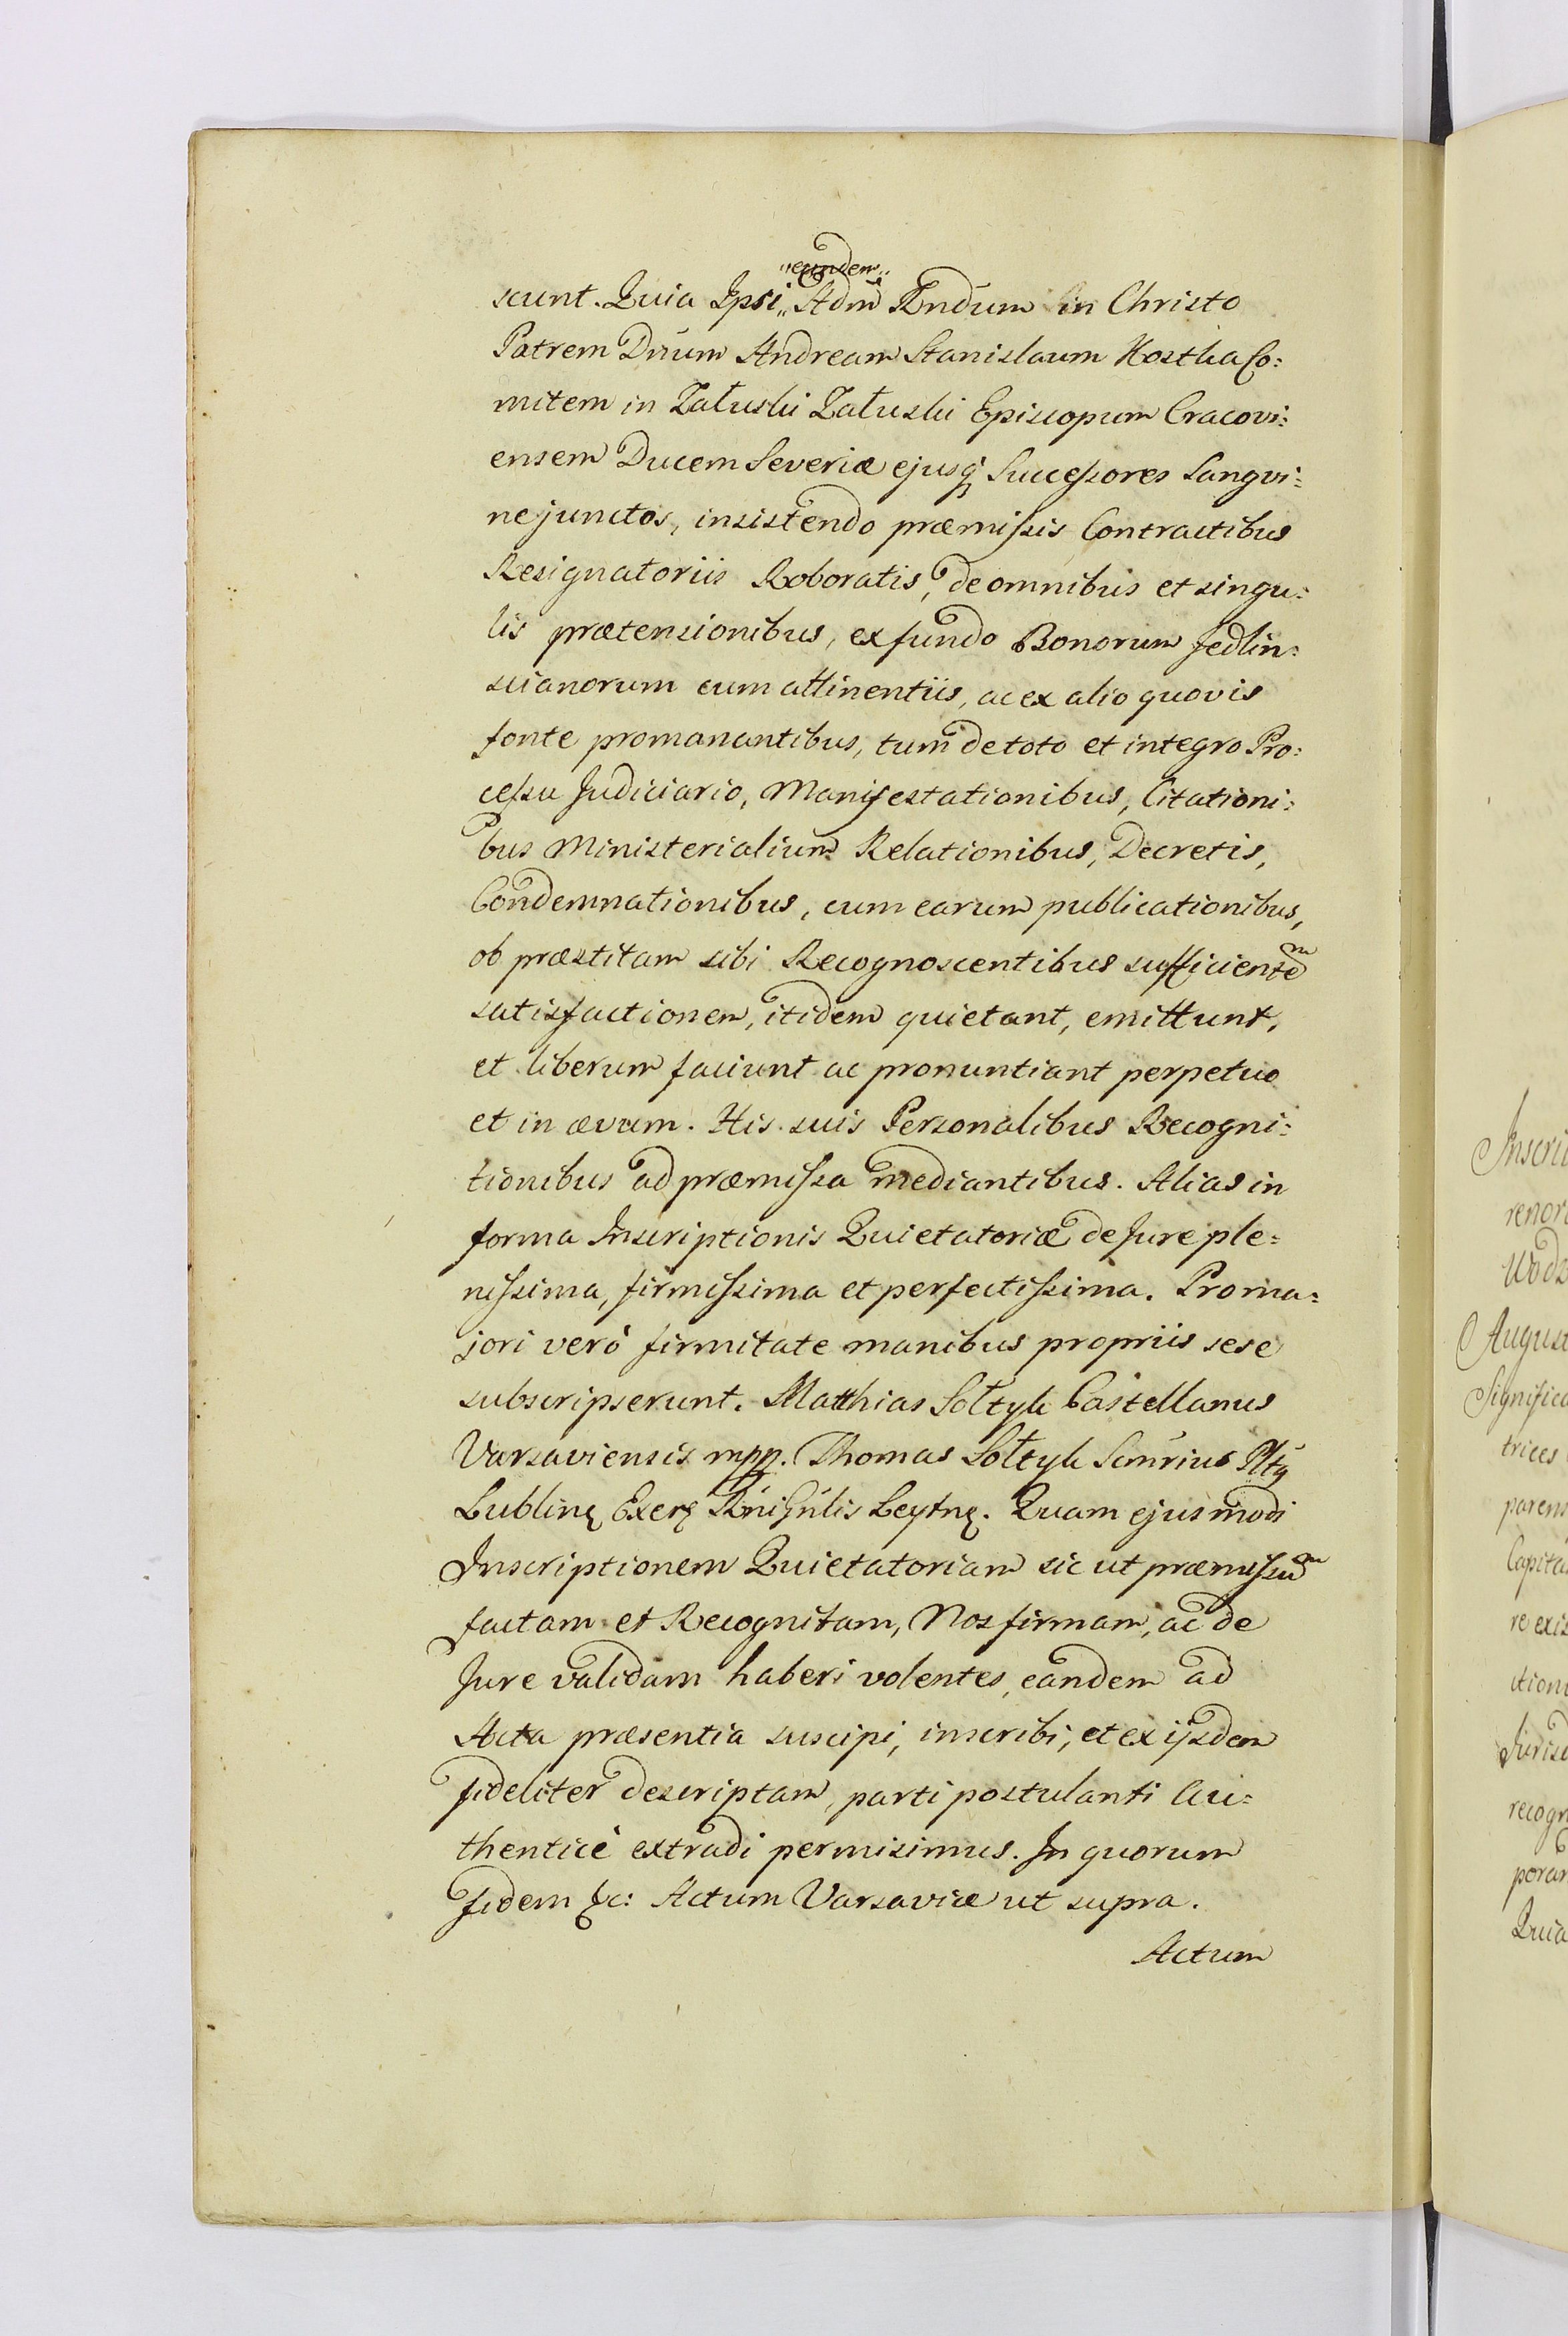 „eundem„
scunt. Quia Ipsi„ Adm̃ Rndum in Christo
Patrem Dnum Andream Stanislaum Kostka Co:
mitem in Załuski Załuski Episcopum Cracovi:
ensem Ducem Severiæ ejusq́ Successores Sangvi:
ne junctos, insistendo præmissis Contractibus
Resignatoriis Roboratis, de omnibus et singu:
lis prætensionibus, ex fundo Bonorum Jedlin:
scianorum cum attinentiis, ac ex alio quovis
fonte promanantibus, tum de toto et integro Pro:
cessu Judiciario, Manifestationibus, Citationi:
bus Ministerialium Relationibus, Decretis,
Condemnationibus, cum earum publicationibus,
ob præstitam sibi Recognoscentibus sufficientem
satisfactionem, itidem quietant, emittunt,
et liberum faciunt ac pronuntiant perpetuo
et in ævum. His suis Personalibus Recogni:
tionibus ad præmissa mediantibus. Alias in
forma Inscriptionis Quietatoriæ de Jure ple:
nissima, firmissima et perfectissima. Pro ma:
jori verò firmitate manibus propriis sese
subscripserunt. Matthias Sołtyk Castellanus
Varsaviensis mpp. Thomas Sołtyk
Lublinę Exerę Leytnę. Quam ejusmodi
Inscriptionem Quietatoriam sic ut præmissum
factam et Recognitam, Nos firmam, ac de
Jure validam haberi volentes, eandem ad
Acta præsentia suscipi, inscribi, et ex ijsdem
fideliter descriptam, parti postulanti Au:
thenticè extradi permisimus. In quorum
fidem &c: Actum Varsaviæ ut supra.
Actum
Inscri
renor
Wodz
August
Significa
trices
parens
Capita
re exis
itioni
Jurisd
recogn
poran
Quia